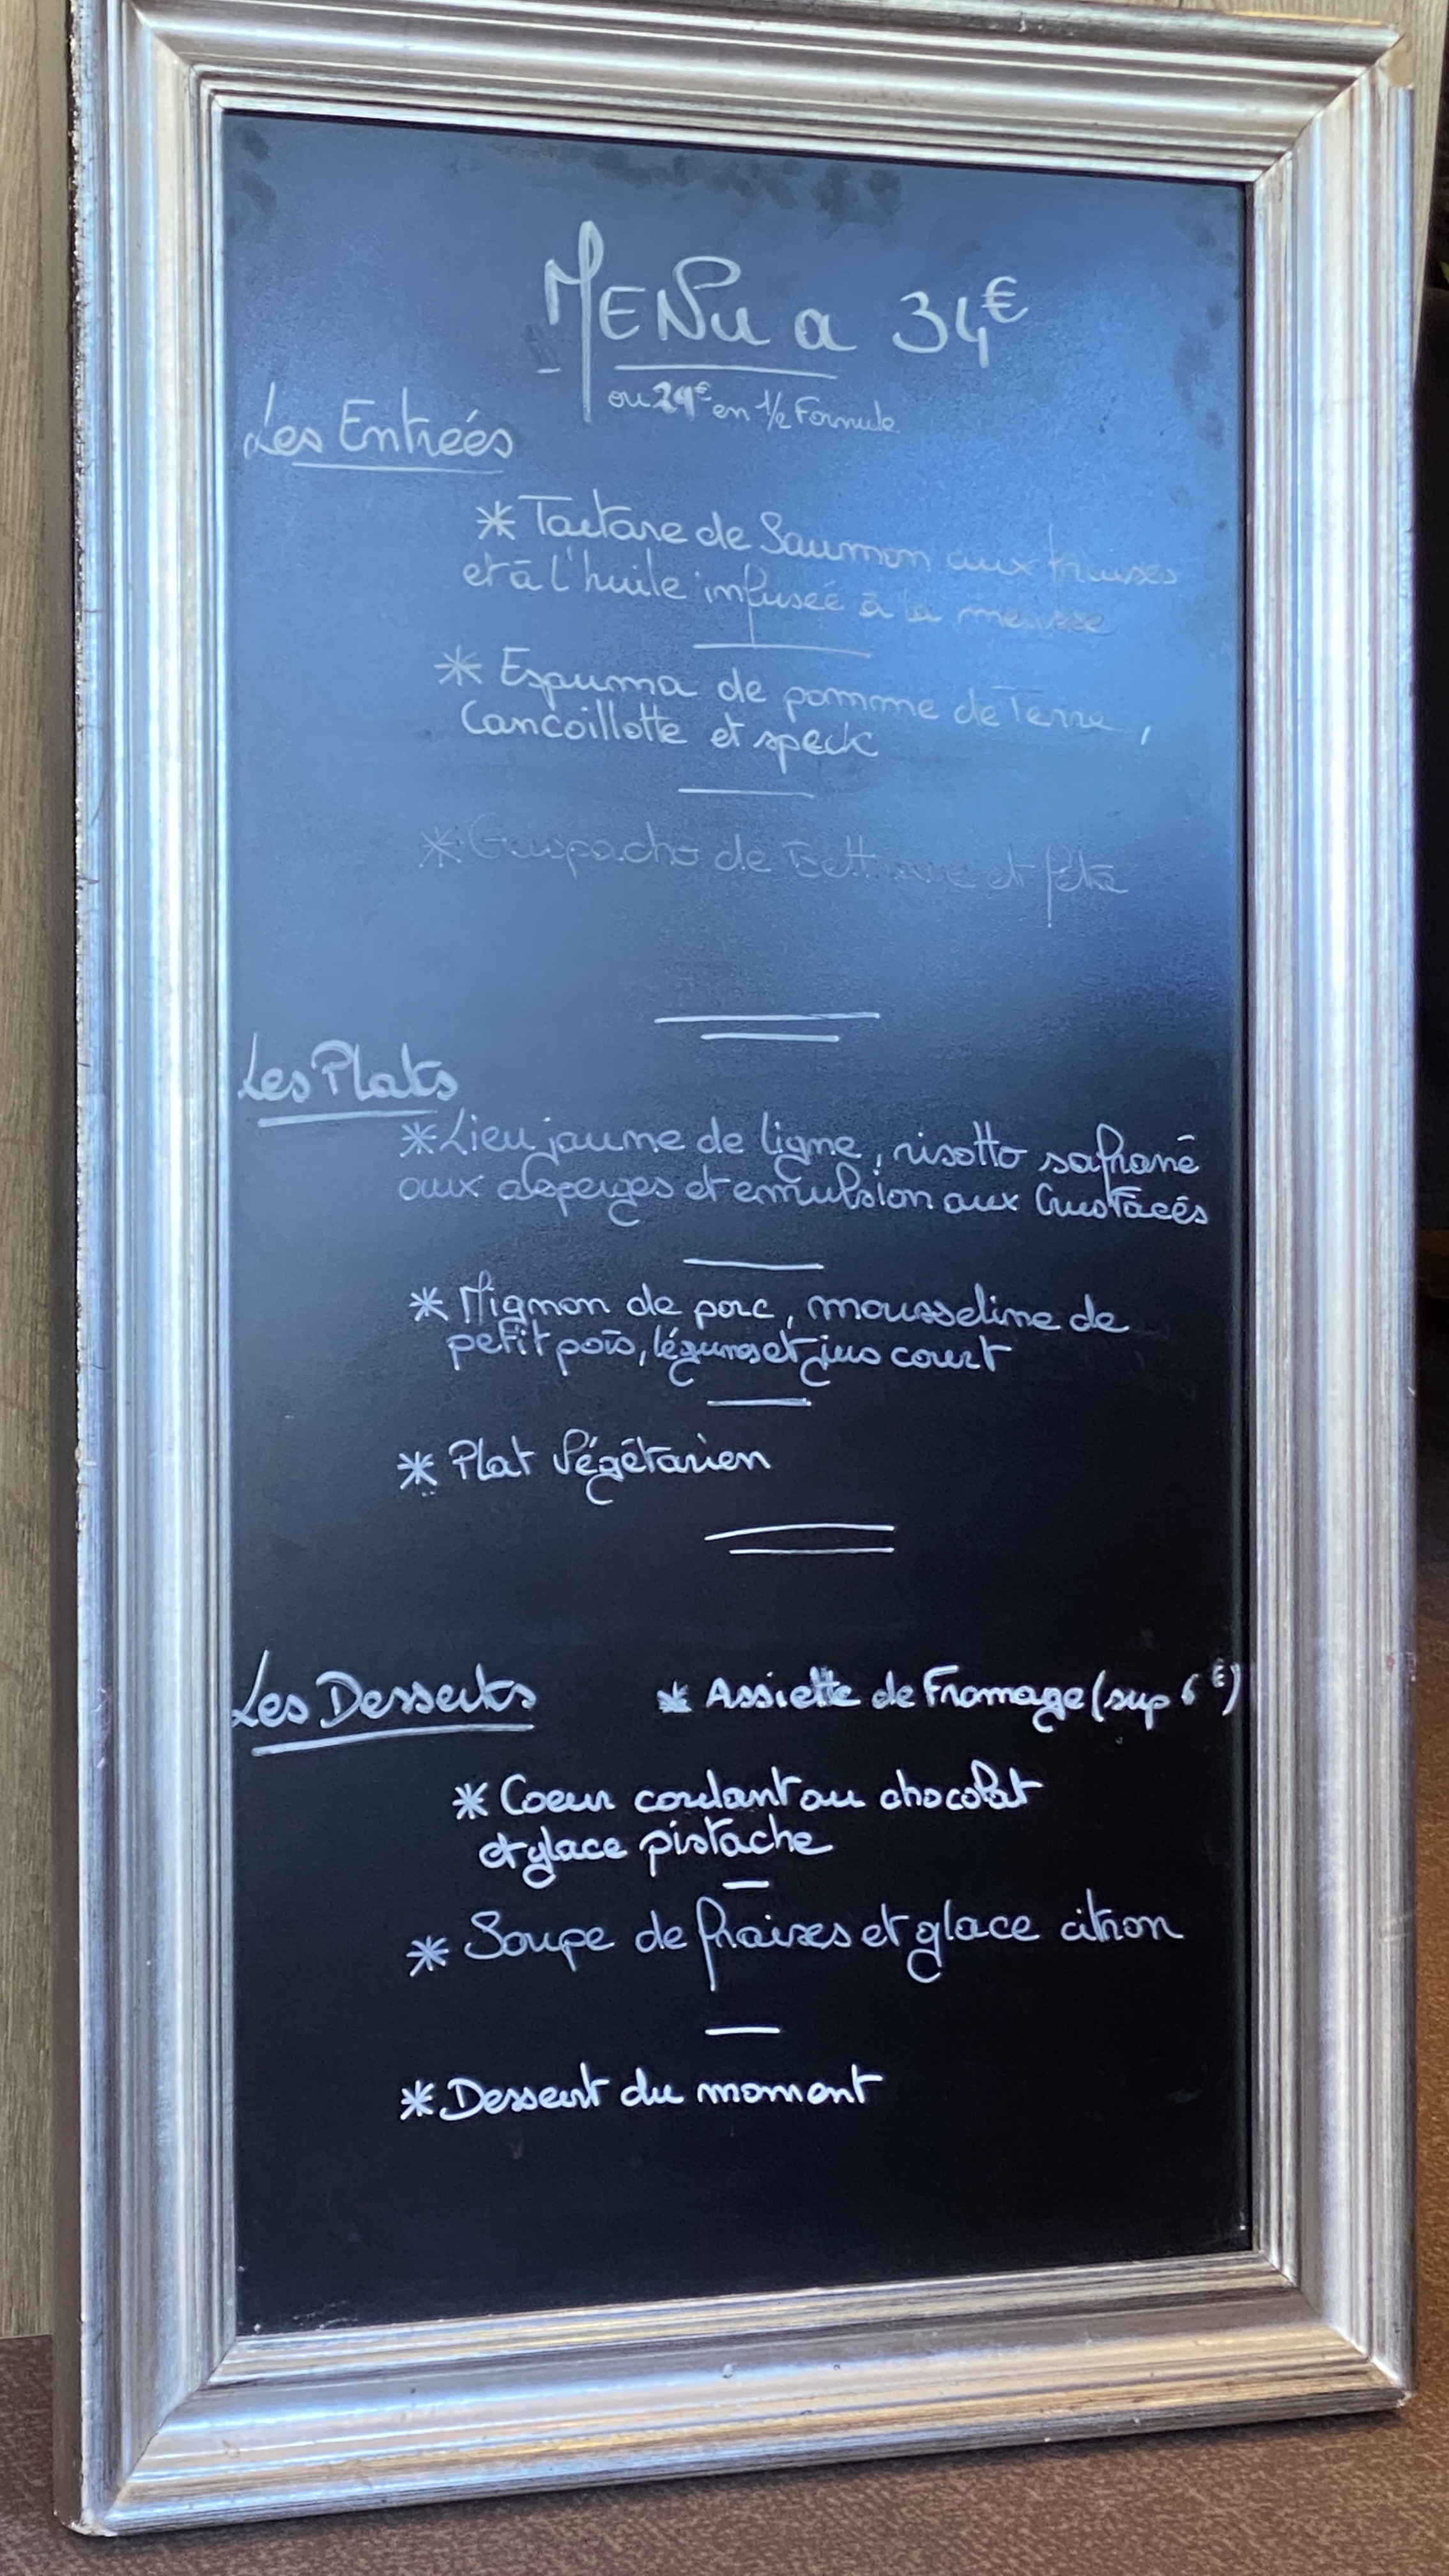 MENu a 34€
ou 29€ en 1/2 Formule
Les Entreés
* Tartare de Saumon aux fraises
et à l'huile infuseé à la
* Espuma de pomme de Terre,
Cancoillotte et speck
* Gaspacho de Betterave et féta
Les Plats
* Lieu jaune de ligne, risotto safrané
aux asperges et emulsion aux Crustacés
* Mignon de porc, mousseline de
petit pois, légumes et jus court
* Plat Végétarien
Les Desserts * Assiette de Fromage (sup 6€)
* Coeur coulant au chocolat
et glace pistache
* Soupe de fraises et glace citron
* Dessert du moment